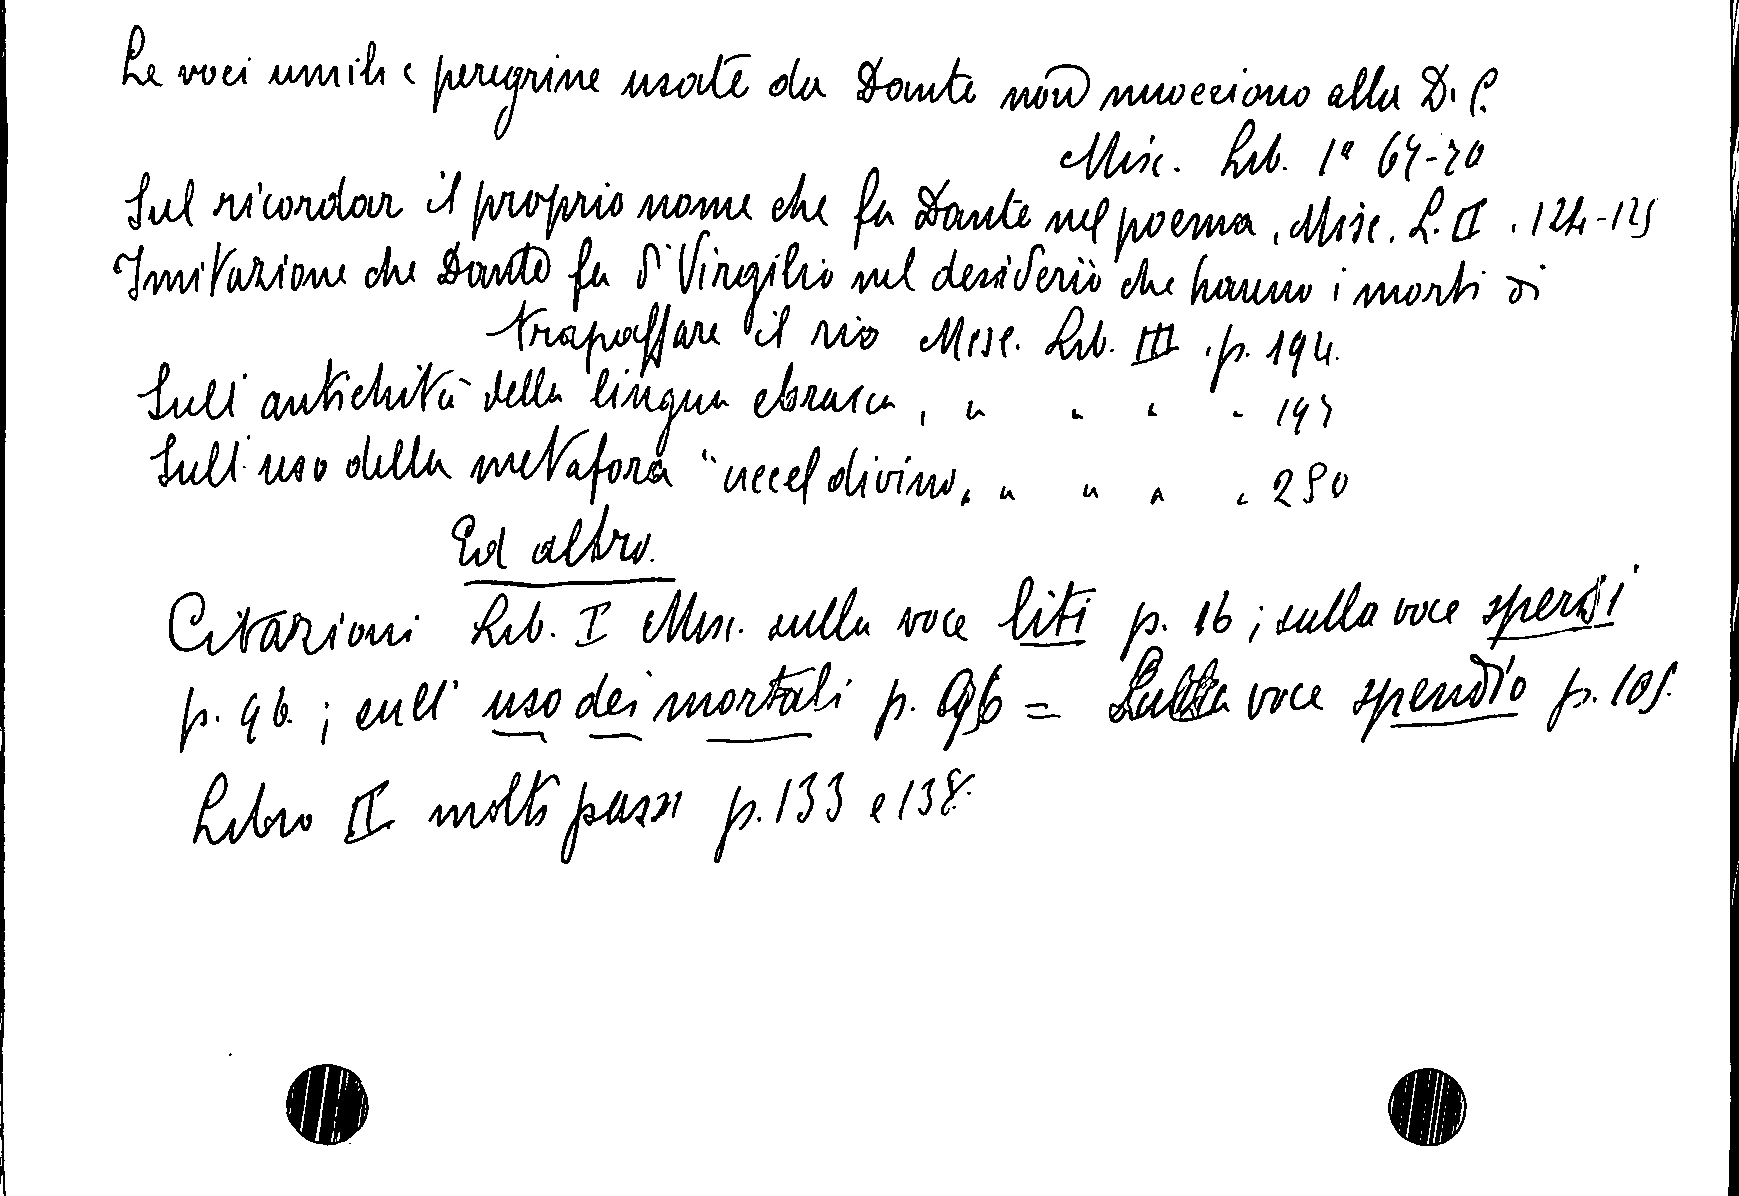 Le voci umili e peregrine usate da Dante non nuocciono alla D. C.
Misc. Lib. 1º 67-70
Sul ricordar il proprio nome che fa Dante nel poema, Misc. L. II. 124-125
Imitazione che Dante fa di Virgilio nel desiderio che hanno i morti di
trapassare il rio Misc. Lib. III. p. 194.
Sull' antichità della lingua ebraica, " " " " 197
Sull' uso della metafora "uccel divino, " " " " 250
Ed altro.
Citazioni Lib. I Misc. sulla voce liti p. 16; sulla voce spersi
p. 96; sull' uso dei mortali p. 96 = Sulla voce spendio p. 105.
Libro II molti passi p. 133 e 138.